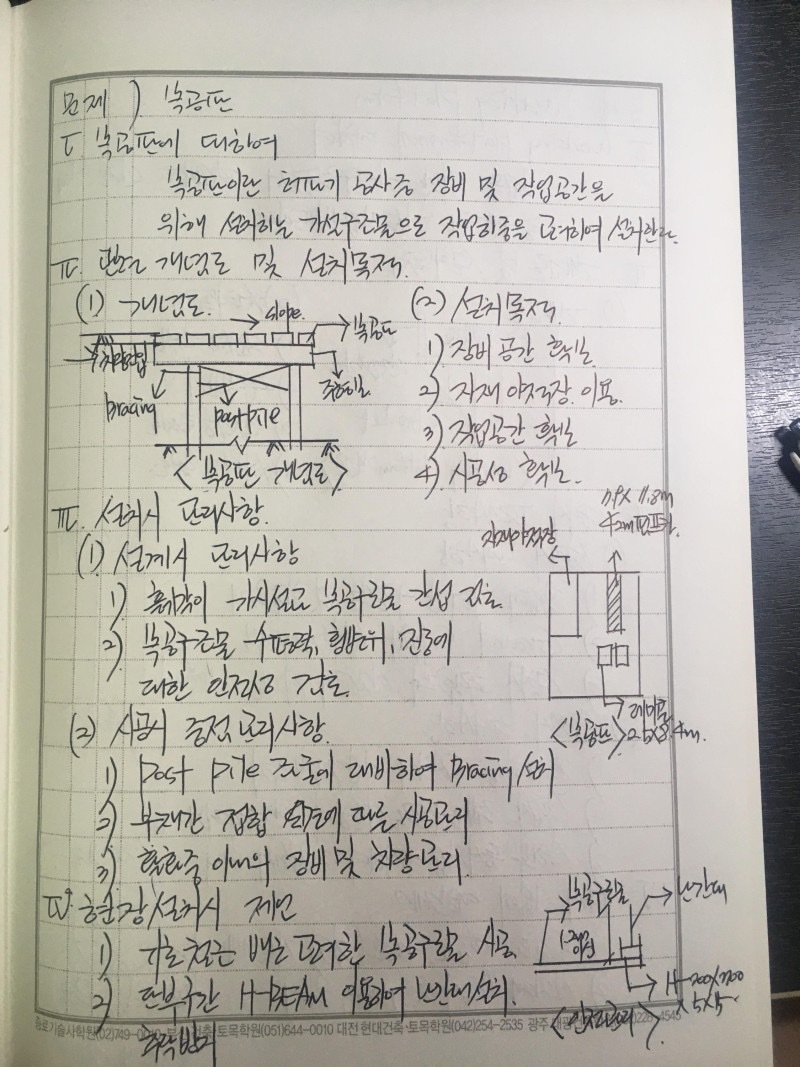 문제 ) 복공판
I. 복공판에 대하여
복공판이란 터파기 공사중 장비 및 작업공간을
위해 설치하는 가설구조물으로 작업하중을 고려하여 설치한다.
II. 관련 개념도 및 설치목적.
(1) 개념도.
slope.
복공판
차량진입
주형보
Bracing
post pile
<복공판 개념도>
(2) 설치목적
1) 장비 공간 확보.
2) 자재 야적장 이용.
3) 작업공간 확보
4) 시공성 확보.
III. 설치시 관리사항.
(1) 설계시 관리사항
1) 흙막이 가시설과 복공구조물 간섭 검토
2) 복공구조물 수평력, 횡변위, 진동에
대한 안전성 검토.
자재야적장
11.8m
42m 펌프카.
레미콘
<복공판>
(2) 시공시 중점관리사항.
1) post pile 좌굴에 대비하여 Bracing 설치
2) 부재간 접합 에 따른 시공관리
3) 활하중 이내의 장비 및 차량관리.
IV. 현장설치시 제언
1) 배수 고려한 복공구조물 시공.
2) 단부구간 H-BEAM 이용하여 난간대 설치.
추락방지
복공구조물
난간대
<안전관리>
종로기술사학원(02)749-0010 부산건축·토목학원(051)644-0010 대전현대건축·토목학원(042)254-2535 광주